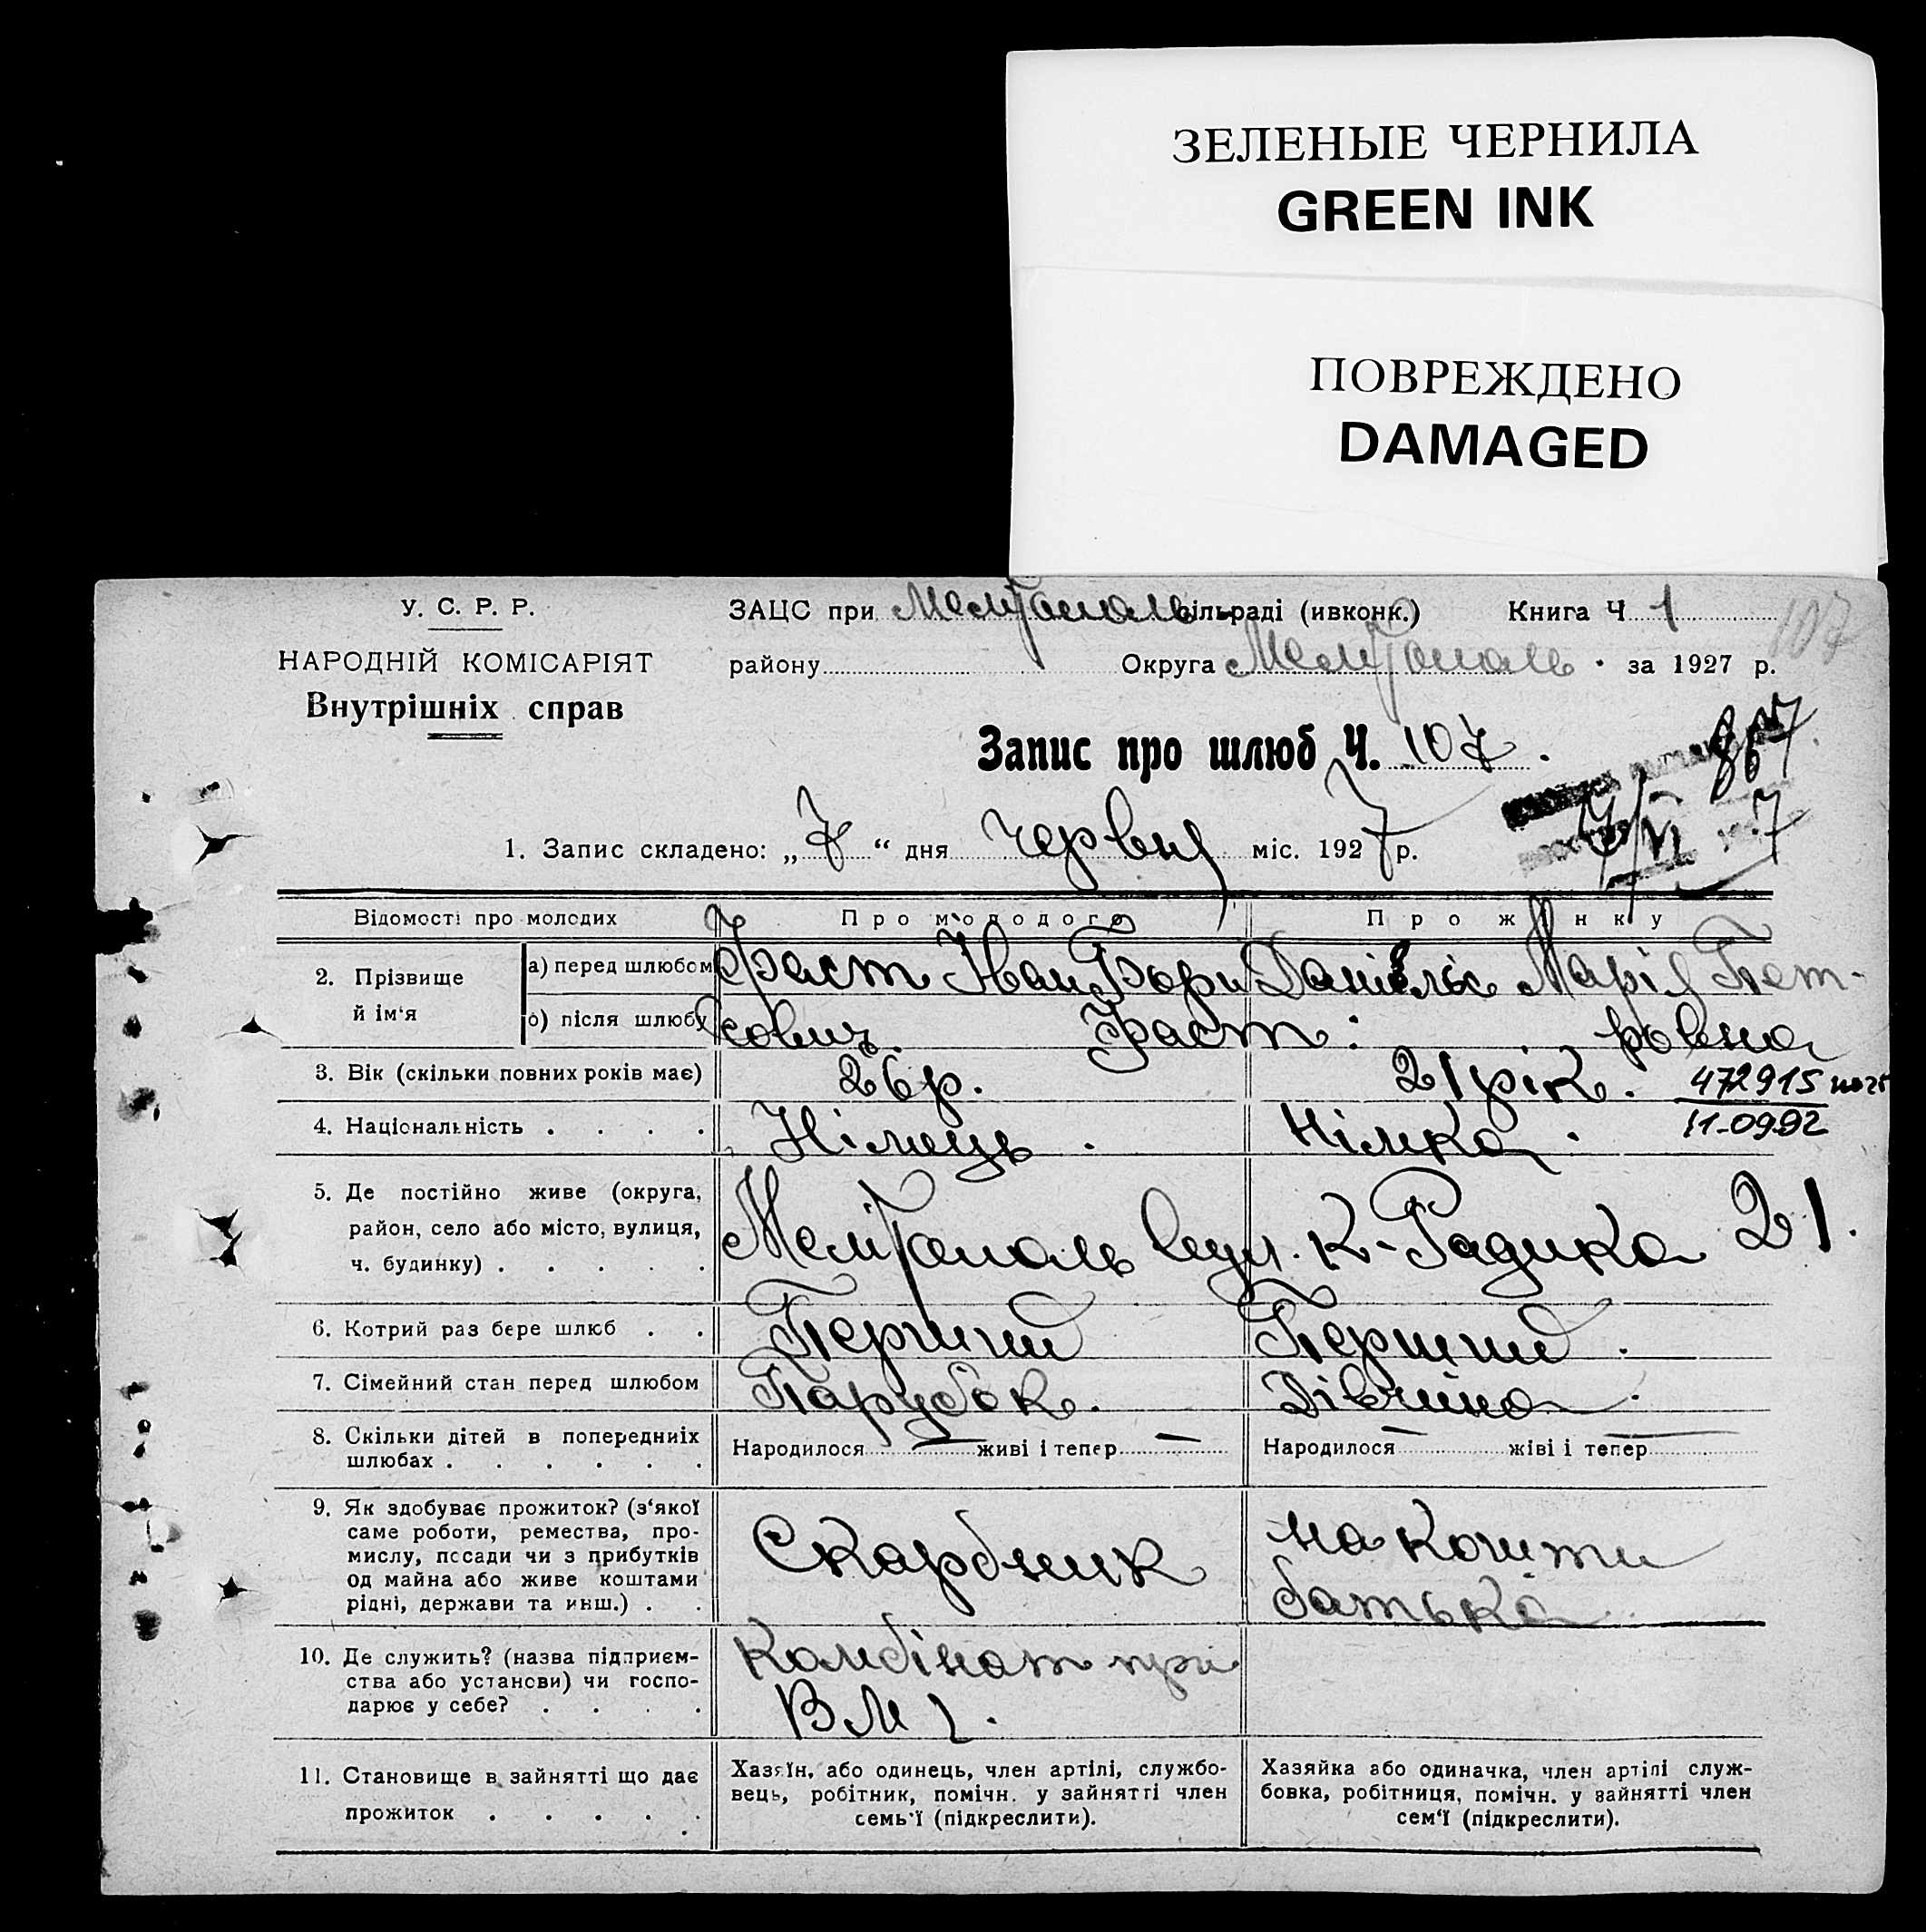 ЗЕЛЕНЫЕ ЧЕРНИЛА
GREEN INK
ПОВРЕЖДЕНО
DAMAGED
У. С. Р. Р.
НАРОДНІЙ КОМІСАРІЯТ
Внутрішніх справ
ЗАЦС при Мелітополь сільраді (ивконк.) Книга Ч. 1
107
району Округа Мелітополь за 1927 р.
Запис про шлюб Ч. 107.
867
1. Запис складено: „7“ дня червня міс. 1927 р.
7/VI 7
Відомості про молодих Про молодого Про жінку
2. Прізвище й ім‘я
а) перед шлюбом Фаст Іван Борисович Даніельс Марія Петровна
б) після шлюбу Фаст:
3. Вік (скільки повних років має) 26 р. 21 рік.
472915
11-09.92
4. Національність . . . . Німець. Німка.
5. Де постійно живе (округа,
район, село або місто, вулиця,
ч. будинку) . . . . .
Мелітополь вул. К-Радика 21.
6. Котрий раз бере шлюб . . Перший Перший.
7. Сімейний стан перед шлюбом Парубок. Дівчина.
8. Скільки дітей в попередніх
шлюбах . . . . . .
Народилося — живі і тепер — Народилося — жіві і тепер —
9. Як здобуває прожиток? (з‘якої
саме роботи, ремества, про-
мислу, посади чи з прибутків
од майна або живе коштами
рідні, держави та инш.) . .
Скарбник
на кошти
батька
10. Де служить? (назва підприєм-
ства або установи) чи госпо-
дарює у себе? . . . .
Комбінат при
11. Становище в зайнятті що дає
прожиток . . . . .
Хазяїн, або одинець, член артілі, службо-
вець, робітник, помічн. у зайнятті член
семь‘ї (підкреслити).
Хазяйка або одиначка, член артілі служ-
бовка, робітниця, помічн. у зайнятті член
сем‘ї (підкреслити).